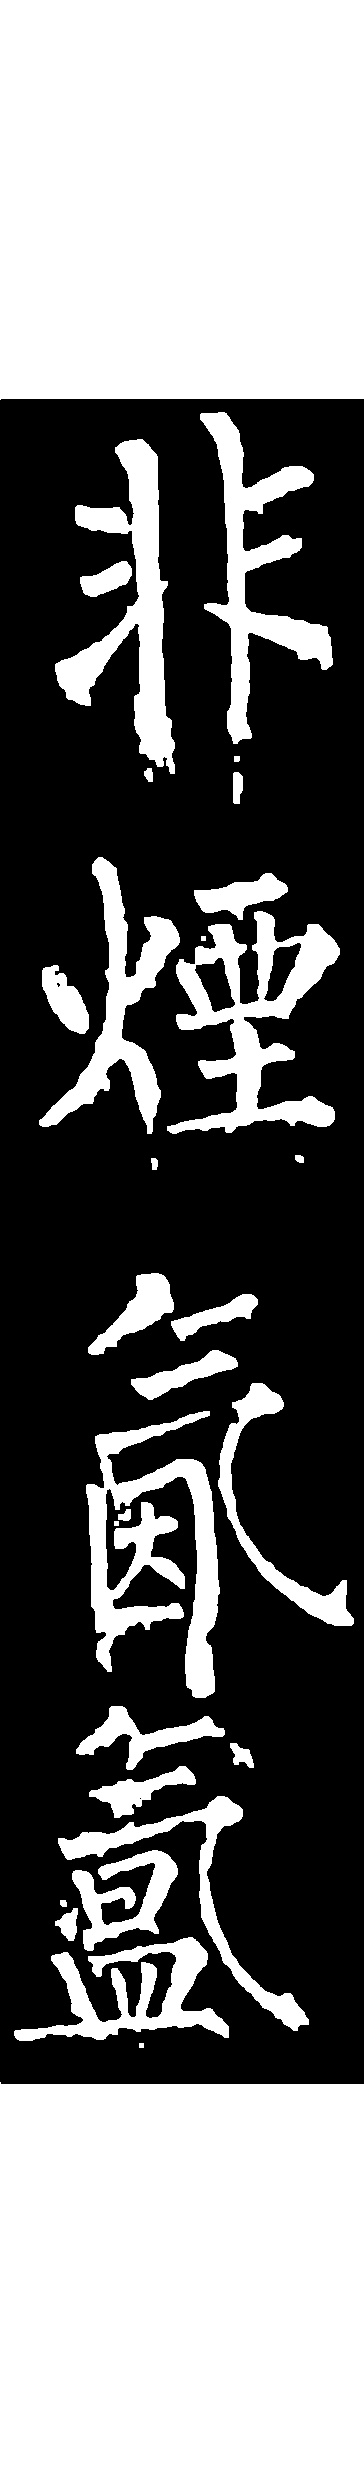 非煙氤氳